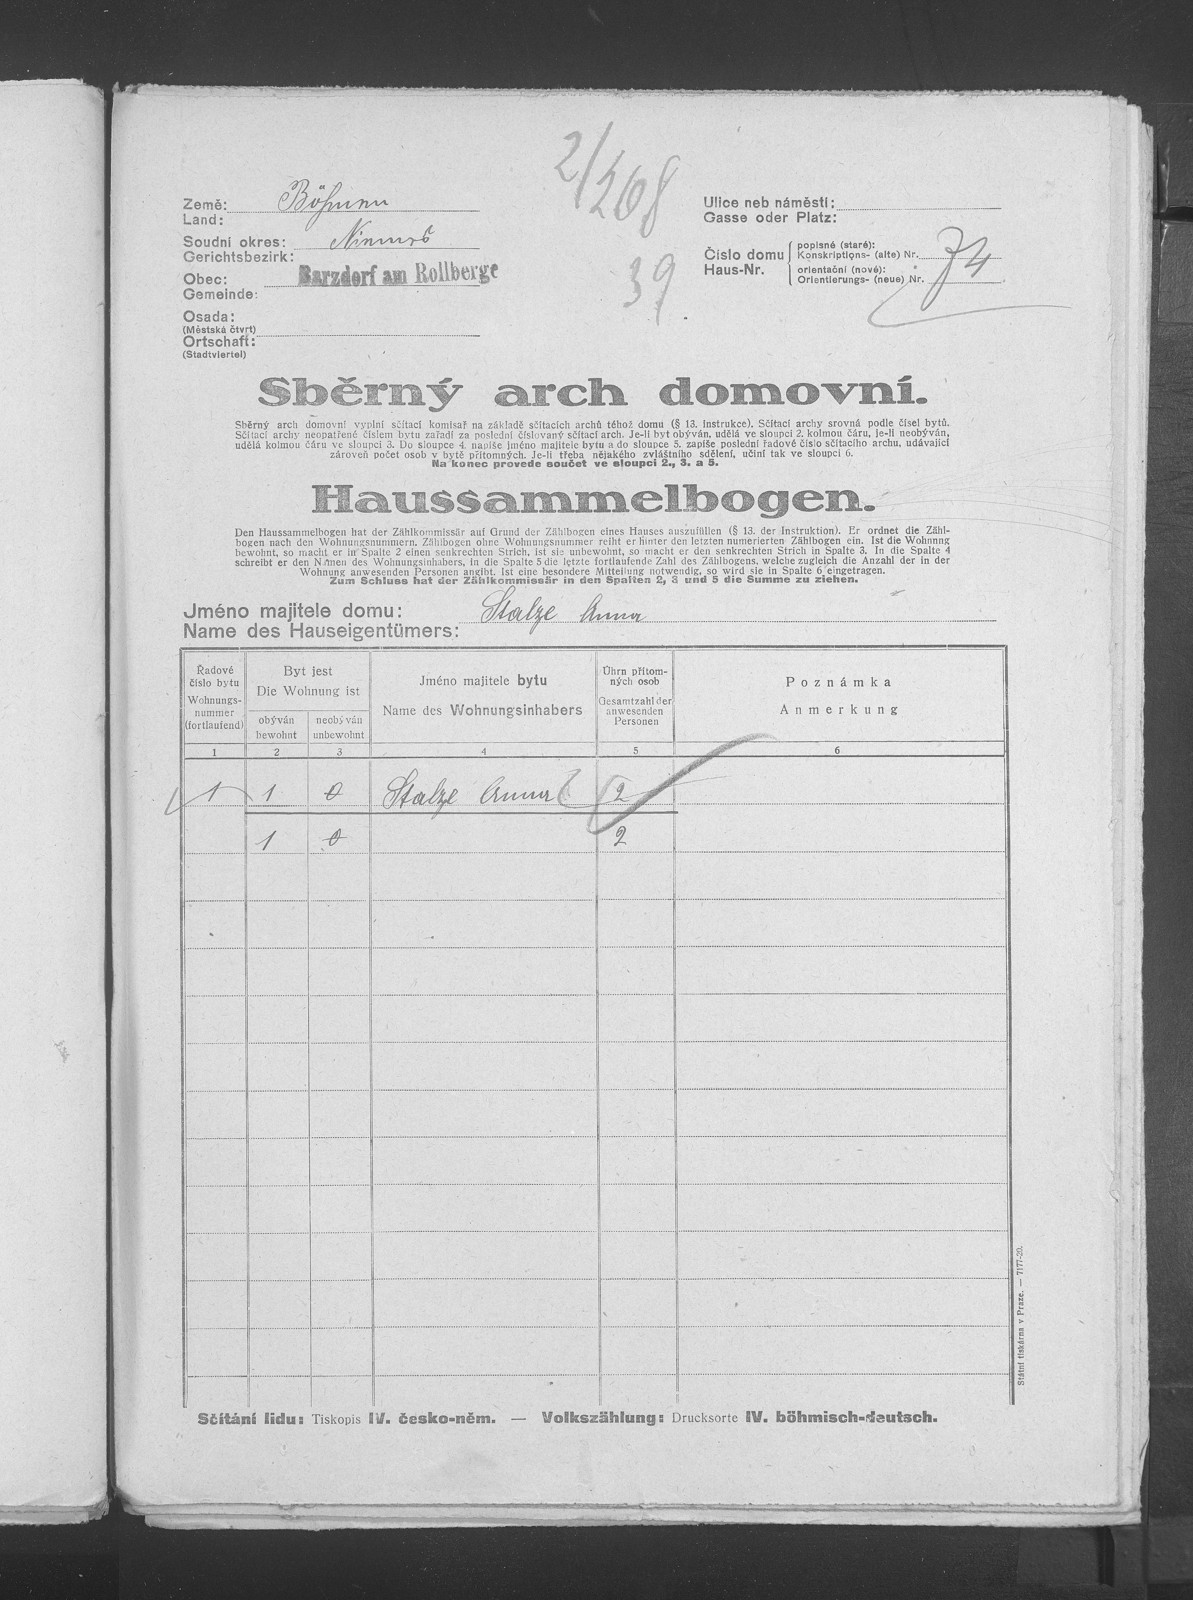 2/268
39
Země: Böhmen
Land:
Soudní okres: Niemes
Gerichtsbezirk:
Obec: Barzdorf am Rollberge
Gemeinde:
Osada:
(Městská čtvrt)
Ortschaft:
(Stadtviertel)
Ulice neb náměstí:
Gasse oder Platz:
Číslo domu popisné (staré):
Haus-Nr. Konskriptions- (alte) Nr. 74
orientační (nové):
Orientierungs- (neue) Nr.
Sběrný arch domovní.
Sběrný arch domovní vyplní sčítací komisař na základě sčítacích archů téhož domu (§ 13. instrukce). Sčítací archy srovná podle čísel bytů.
Sčítací archy neopatřené číslem bytu zařadí za poslední číslovaný sčítací arch. Je-li byt obýván, udělá ve sloupci 2. kolmou čáru, je-li neobýván,
udělá kolmou čáru ve sloupci 3. Do sloupce 4. napíše jméno majitele bytu a do sloupce 5. zapíše poslední řadové číslo sčítacího archu, udávající
zároveň počet osob v bytě přítomných. Je-li třeba nějakého zvláštního sdělení, učiní tak ve sloupci 6.
Na konec provede součet ve sloupci 2., 3. a 5.
Haussammelbogen.
Den Haussammelbogen hat der Zählkommissär auf Grund der Zählbogen eines Hauses auszufüllen (§ 13. der Instruktion). Er ordnet die Zähl-
bogen nach den Wohnungsnummern. Zählbogen ohne Wohnungsnummer reiht er hinter den letzten numerierten Zählbogen ein. Ist die Wohnnng
bewohnt, so macht er in Spalte 2 einen senkrechten Strich, ist sie unbewohnt, so macht er den senkrechten Strich in Spalte 3. In die Spalte 4
schreibt er den Namen des Wohnungsinhabers, in die Spalte 5 die letzte fortlaufende Zahl des Zählbogens, welche zugleich die Anzahl der in der
Wohnung anwesenden Personen angibt. Ist eine besondere Mitteilung notwendig, so wird sie in Spalte 6 eingetragen.
Zum Schluss hat der Zählkommissär in den Spalten 2, 3 und 5 die Summe zu ziehen.
Jméno majitele domu: Stalze Anna
Name des Hauseigentümers:
Řadové číslo bytu
Wohnungs-nummer (fortlaufend)
Byt jest
Die Wohnung ist
obýván
bewohnt
neobýván
unbewohnt
Jméno majitele bytu
Name des Wohnungsinhabers
Úhrn přítom-ných osob
Gesamtzahl der anwesenden Personen
Poznámka
Anmerkung
1 2 3 4 5 6
1 1 0 Stalze Anna 2
1 0 2
Sčítání lidu: Tiskopis IV. česko-něm. — Volkszählung: Drucksorte IV. böhmisch-deutsch.
Státní tiskárna v Praze. — 7177-20.